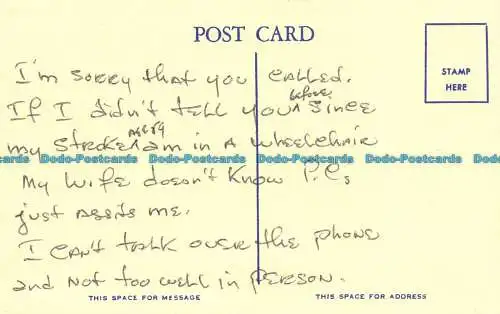 POST CARD
STAMP
HERE
I'm sorry that you called.
If I didn't tell you before, since
my stroke I am in a wheelchair
Dodo-Postcards Dodo-Postcards Dodo-Postcards Dodo-Postcards
My wife doesn't know P.C.s
just assits me.
I can't talk over the phone
and not too well in person.
THIS SPACE FOR MESSAGE
THIS SPACE FOR ADDRESS